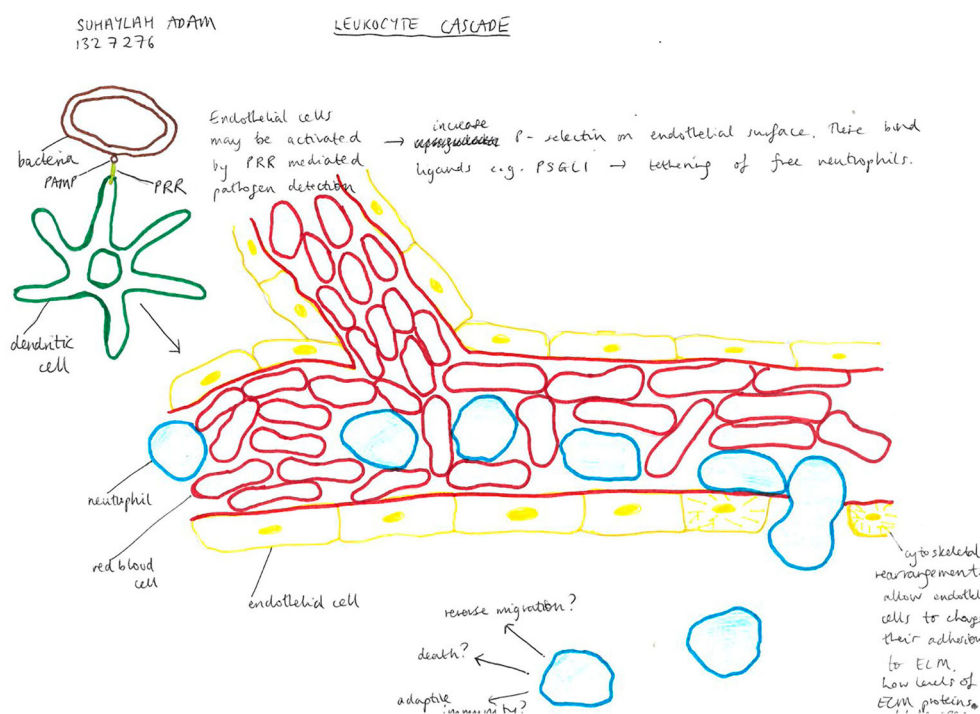 SUHAYLAH ADAM
1327276
LEUKOCYTE CASCADE
bacteria
PAMP
PRR
dendritic
cell
Endothelial cells
may be activated
by PRR mediated
pathogen detection
→ increase P-selectin on endothelial surface. These bind
ligands e.g. PSGL1 → tethering of free neutrophils.
neutrophil
red blood
cell
endothelial cell
reverse migration?
death?
adaptive
immunity?
cytoskeletal
rearrangement
allow
cells to
their
to ECM.
Low levels of
ECM proteins